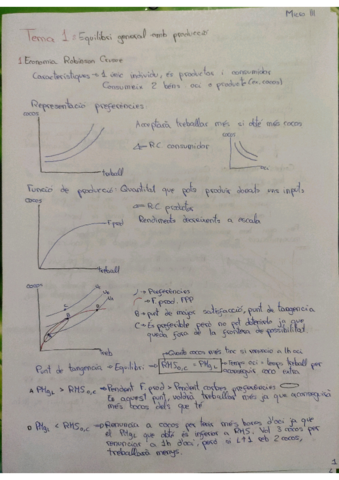 Micro III
Tema 1: Equilibri general amb producció
1. Economia Robinson Crusoe
Característiques → 1 sóc individu, és productor i consumidor
Consumeix 2 béns: oci i producte (ex. cocos)
Representació preferències:
cocos
Acceptarà treballar més si obté més cocos
cocos
R.C consumidor
treball
oci
Funció de producció: Quantitat que pots produir donats uns inputs
cocos
R.C productor
F. prod
Rendiments decreixents a escala
treball
cocos
→ Preferències
→ F. prod. FPP
B → punt de major satisfacció, punt de tangència
C → És preferible però no pot obtenir-lo ja que
queda fora de la frontera de possibilitat.
treb
Quants cocos més tinc si renuncio a 1h oci
Punt de tangència → Equilibri → RMS = PMg
→ temps oci i temps treball per
aconseguir coco extra
PMg > RMS → Pendent F. prod > Pendent corbes preferències
En aquest punt, voldrà treballar més ja que aconseguirà
més cocos dels que té
PMg < RMS → Renuncia a cocos per tenir més hores d'oci ja que
el PMg que obté és inferior a RMS. Vol 3 cocos per
renunciar a 1h d'oci, però si L↑1 rep 2 cocos,
treballarà menys.
1